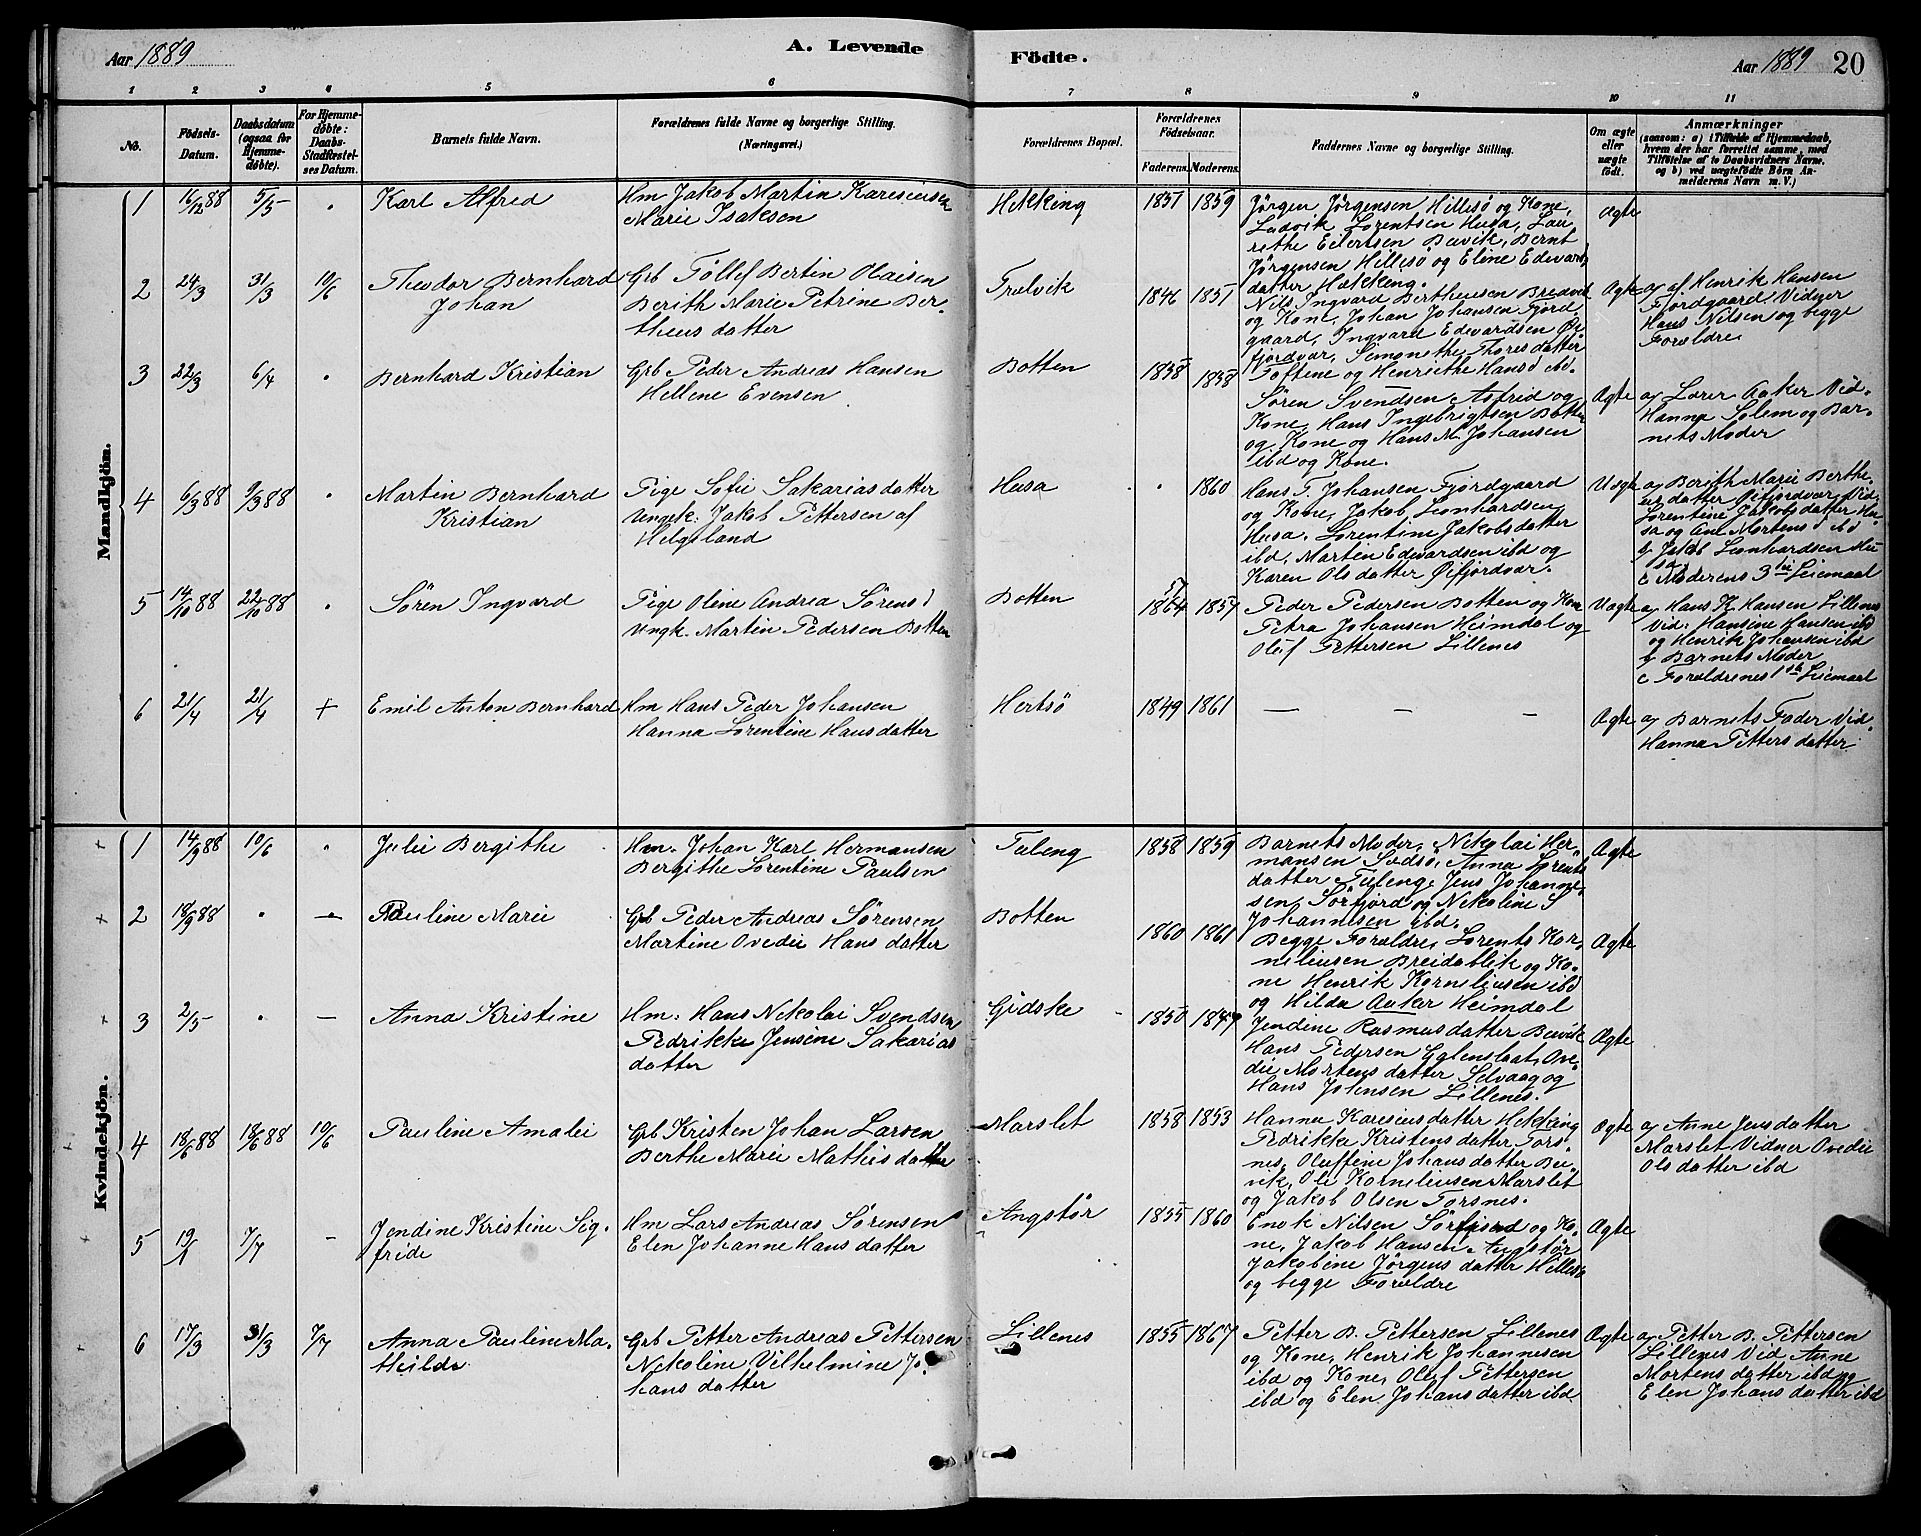 Aar 1889
A. Levende
Födte.
Aar 1889
20
1 2 3 4 5 6 7 8 9 10 11
No.
Födsels-
Datum.
Daabsdatum
(ogsaa for
Hjemme-
döbte).
For Hjemme-
döbte:
Daabs-
Stadfæstel-
ses Datum.
Barnets fulde Navn.
Forældrenes fulde Navne og borgerlige Stilling.
(Næringsvei.)
Forældrenes Bopæl.
Forældrenes
Födselsaar.
Faderens. Moderens.
Faddernes Navne og borgerlige Stilling.
Om ægte
eller
uægte
födt.
Anmærkninger
(saasom: a) i Tilfælde af Hjemmedaab,
hvem der har forrettet samme, med
Tilföielse af to Daabsvidners Navne,
og b) ved uægtefödte Börn An-
melderens Navn m. V.)
Mandkjön.
1
16/12 88
5/5
Karl Alfred
Hm Jakob Martin Karesiusen
Marie Isaksen
Hekking
1857 1859
Jörgen Jörgensen Hillesö og Kone,
Ludvik Lorentsen Husa, Lau-
rethe Eilertsen Buvik, Bernt
Jörgensen Hillesö og Eline Edvards
datter Hekking.
Ægte
2
24/3
31/3
10/6
Theodor Bernhard
Johan
Grb Töllef Bertin Olaisen
Berith Marie Petrine Ber-
theusdatter
Trælvik
1846 1851
Nils Ingvard Bertheusen Bredvik
og Kone, Johan Johansen Fjord-
gaard, Ingvard Edvardsen Öi-
fjordvær, Simonethe Thoresdatter
Toftene og Henriethe Hansd ibd.
Ægte
a, af Henrik Hansen
Fjordgaard, Vidner
Hans Nilsen og begge
Forældre
3
22/3
6/4
Bernhard Kristian
Grb Peder Andreas Hansen
Hellene Evensen
Botten
1858 1858
Sören Svendsen Astrid og
Kone, Hans Ingebrigtsen Botten
og Kone og Hans M. Johansen
ibd og Kone.
Ægte
a, Lærer Aaker Vid.
Hanna Solem og Bar-
nets Moder
4
6/3 88
9/3 88
Martin Bernhard
Kristian
Pige Sofie Sakariasdatter
Ungk. Jakob Pettersen af
Helgeland
Husa
1860
Hans P. Johansen Fjordgaard
og Kone, Jakob Leonhardsen
Husa, Lorentine Jakobsdatter
ibd, Martin Edvardsen ibd og
Karen Olsdatter Öifjordvær.
Uægte
a, Berith Marie Berthe-
usdatter Öifjordvær, Vid.
Lorentine Jakobsdatter Hu-
sa og Ane Mortensd ibd
b, Jakob Leonhardsen Hu-
sa,
c Moderens 3die Leiemaal
5
14/10 88
22/10 88
Sören Ingvard
Pige Oline Andrea Sörensd
Ungk. Martin Pedersen Botten
Botten
57
1864 1857
Peder Pedersen Botten og Kone
Petra Johansen Heimdal og
Oluf Pettersen Lillenes
Uægte
a, Hans K Hansen Lillenes
Vid: Hansine Hansen ibd
og Henrik Johansen ibd
b, Barnets Moder
c Forældrenes 1ste Leiemaal
6
21/4
21/4
+
Emil Anton Bernhard
Hm Hans Peder Johansen
Hanna Lorentine Hansdatter
Hertsö
1849 1861
— — —
Ægte
a, Barnets Fader, Vid.
Hanna Pettersdatter
Kvindekjön.
1
14/9 88
10/6
Julie Bergithe
Hm. Johan Karl Hermansen
Bergithe Lorentine Paulsen
Tuleng
1858 1859
Barnets Moder, Nikolai Her-
mansen Sedsö, Anna Lorents
datter Tuleng, Jens Johanne-
sen, Sörfjord og Nikoline S
Johannesen ibd.
Ægte
2
18/9 88
—
Pauline Marie
Grb Peder Andreas Sörensen
Martine Ovedie Hansdatter
Botten
1860 1861
Begge Forældre, Lorents Kor-
neliusen Breidablik og Ko-
ne Henrik Korneliusen ibd
og Hilda Aaker Heimdal
Ægte
3
2/5
—
Anna Kristine
Hm. Hans Nikolai Svendsen
Pedrikke Jensine Sakarias
datter
Gidske
1850 1847
Jendine Rasmusdatter Buvik
Hans Pedersen, Ove-
die Mortensdatter Selvaag og
Hans Johnsen Lillenes.
Ægte
4
18/6 88
18/6 88
10/6
Pauline Amalie
Grb Kristen Johan Larsen
Berthe Marie Mathisdatter
Marslet
1858 1853
Hanna Karesiusdatter Hekking
Pedrikke Kristensdatter Tors-
nes, Oluffine Johansdatter Bu-
vik, Ole Korneliusen Marslet
og Jakob Olsen Torsnes.
Ægte
a, Anne Jensdatter
Marslet Vidner Ovedie
Olsdatter ibd
5
7/7
—
Jendine Kristine Sig-
fride
Hm Lars Andreas Sörensen
Elen Johanne Hansdatter
Angstör
1855 1860
Enok Nilsen Sörfjord og Ko-
ne, Jakob Hansen Angstör
Jakobine Jörgensdatter Hillesö
og begge Forældre
Ægte
6
17/3
31/3
7/7
Anna Pauline Ma-
thilde
Grb Petter Andreas Pettersen
Nikoline Vilhelmine Jo-
hansdatter
Lillenes
1855 1867
Petter B. Pettersen Lillenes
og Kone, Henrik Johannesen
ibd og Kone, Oluf Pettersen
ibd og Elen Johansdatter ibd
Ægte
a, Petter B. Pettersen
Lillenes Vid Anne
Mortensdatter ibd og
Elen Johansdatter ibd